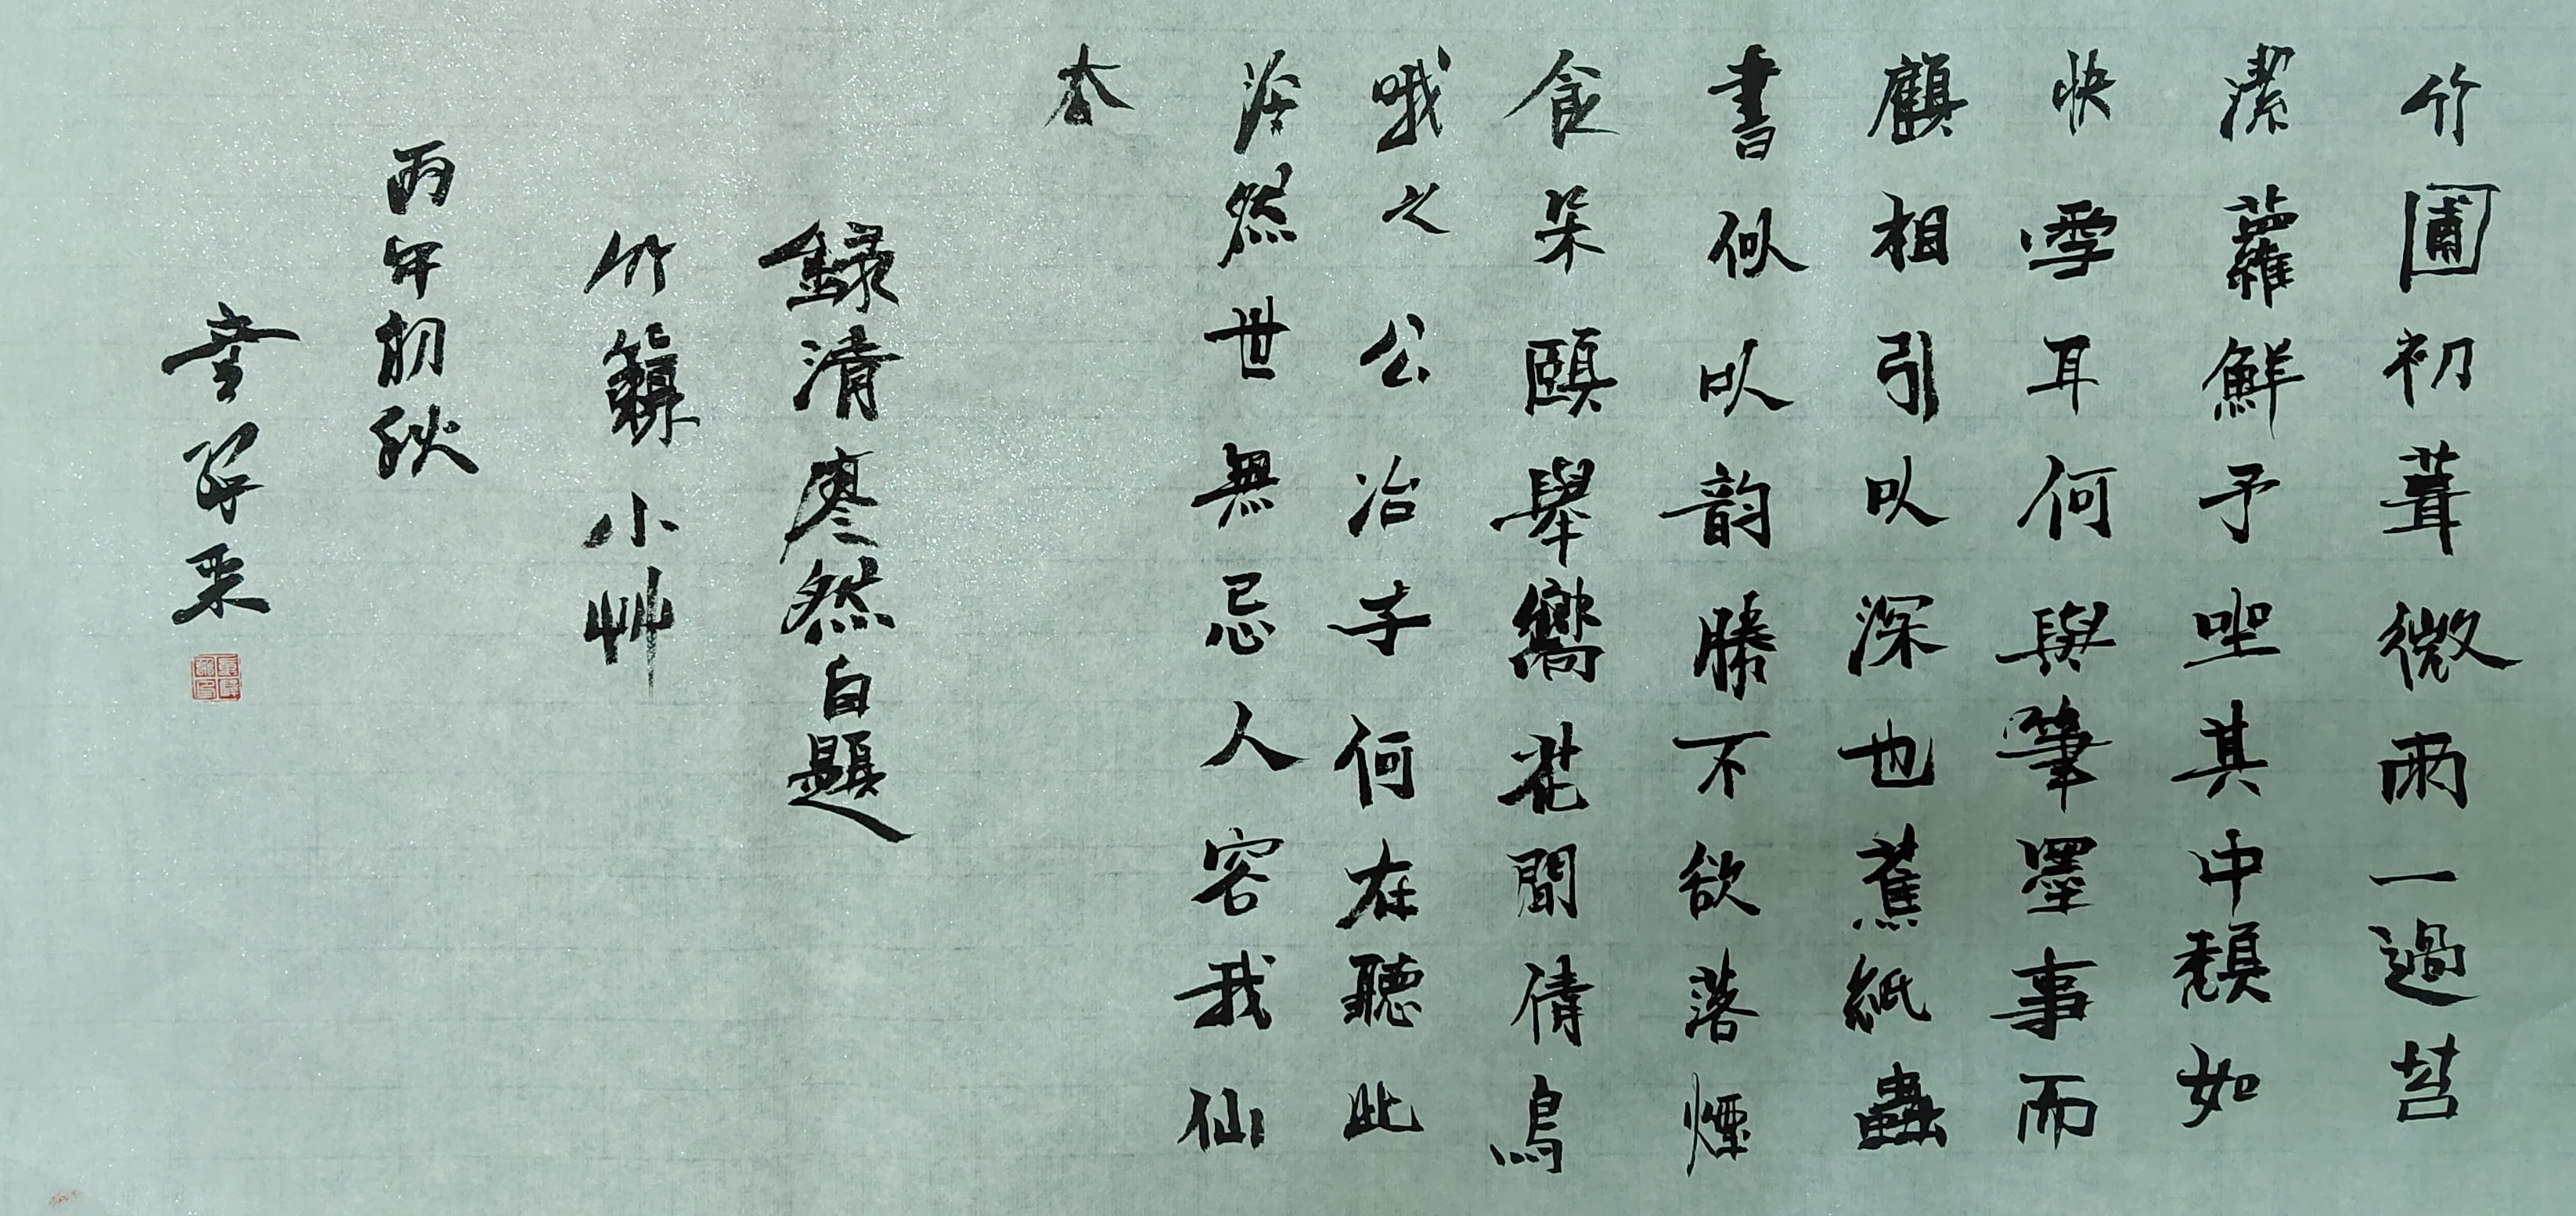 竹圃初葺微雨一過苔
潔蘿鮮予坐其中頹如
快雪耳何與筆墨事而
顧相引以深也蕉紙蟲
書似以韵勝不欲落煙
食朵頤舉嚮花聞倩鳥
哦之公冶子何在聽此
泠然世無忌人容我仙
去
錄清廖然自題
竹籟小艸
丙午初秋